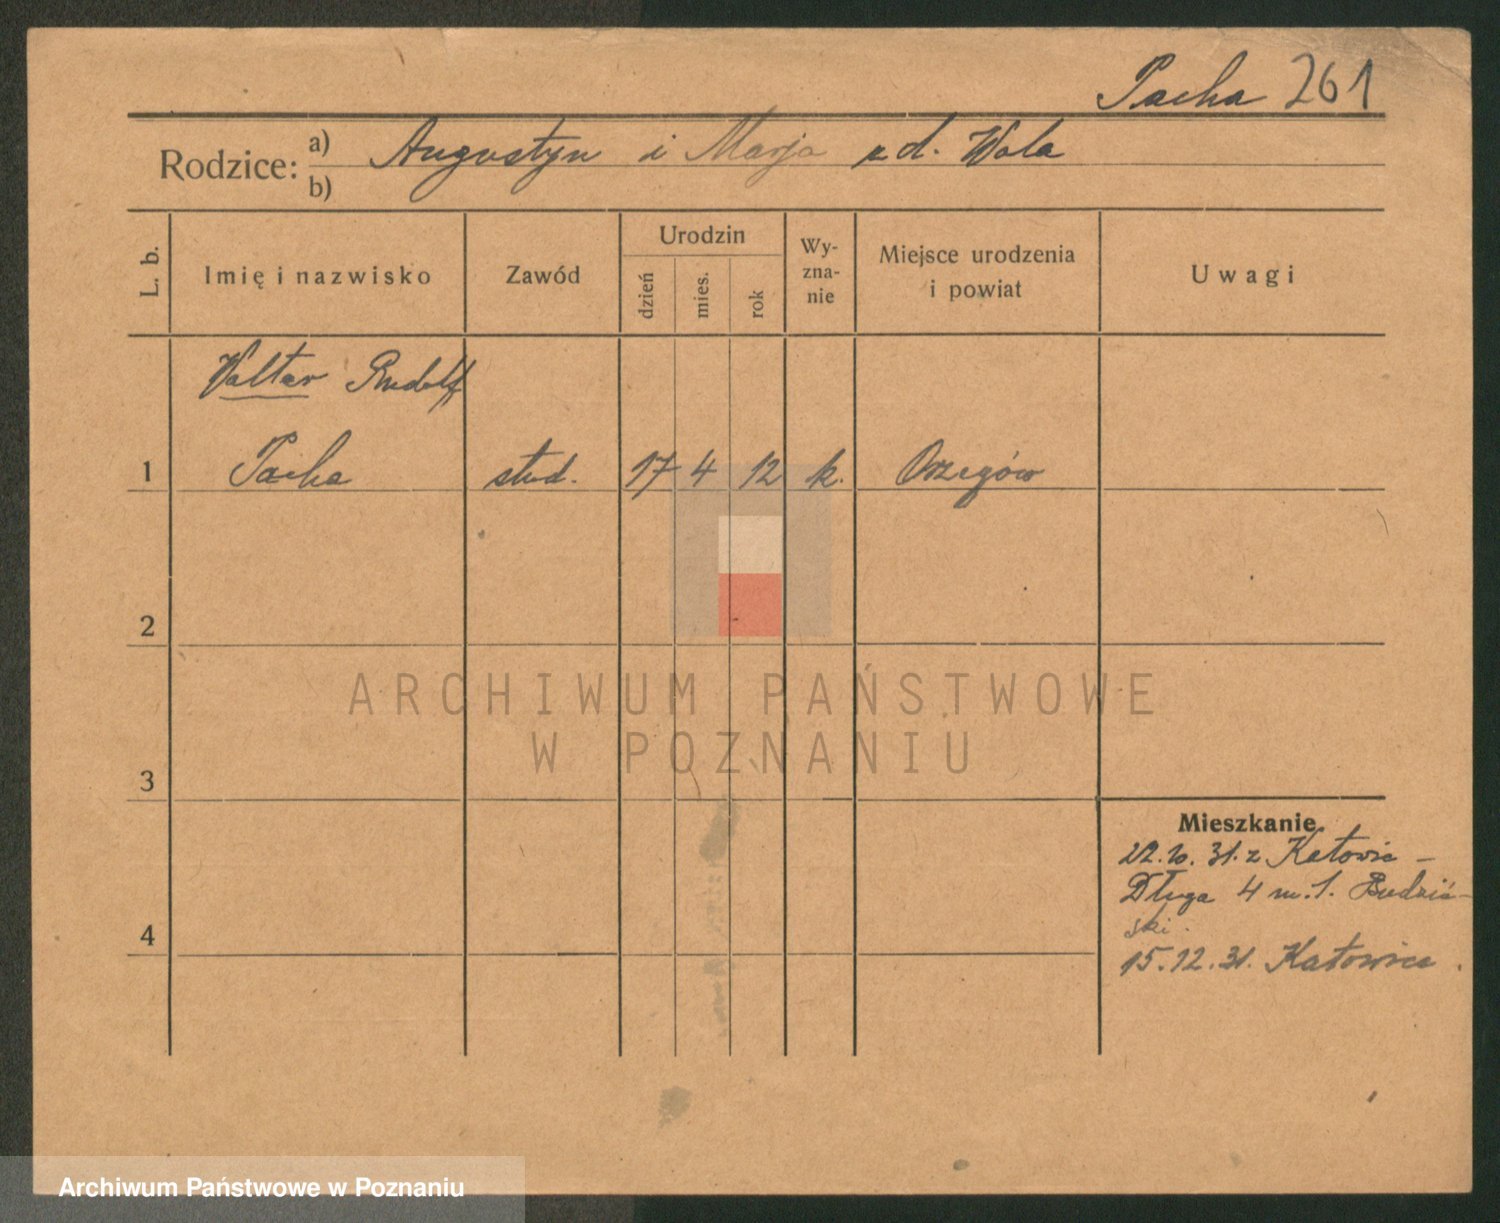 Pacha 261
Rodzice: a) Augustyn i Marja z d. Wola
b)
L. b. Imię i nazwisko Zawód Urodzin dzień mies. rok Wy-zna-nie Miejsce urodzenia i powiat Uwagi
Walter Rudolf
1 Pacha stud. 17 4 12 k. Orzegów
2
ARCHIWUM PAŃSTWOWE
W POZNANIU
3
Mieszkanie
22.10.31. z Katowic –
Długa 4 m. 1. Budziń-
ski.
4
15.12.31. Katowice.
Archiwum Państwowe w Poznaniu